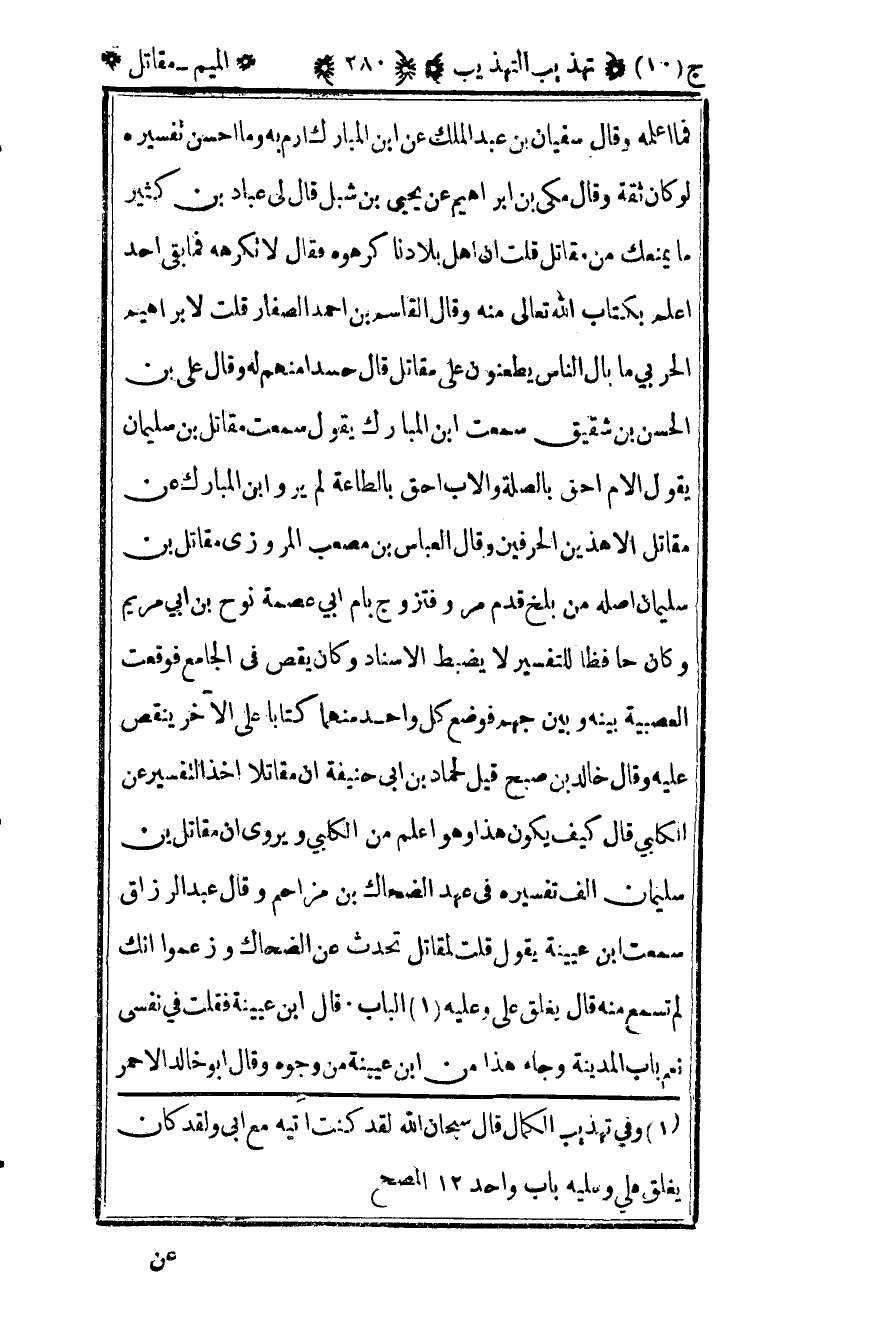 ج (١٠) تهذيب التهذيب ٢٨٠ الميم ـ مقاتل
فما اعلمه وقال سفيان بن عبد الملك عن ابن المبارك ارم به وما احسن تفسيره
لو كان ثقة وقال مكي بن ابراهيم عن يحيى بن شبل قال لى عباد بن كثير
ما يمنعك من مقاتل قلت ان اهل بلادنا كرهوه فقال لا تكرهه فما بقى احد
اعلم بكتاب الله تعالى منه وقال القاسم بن احمد الصفار قلت لابراهيم
الحربي ما بال الناس يطعنون على مقاتل قال حسدا منهم له وقال على بن
الحسن بن شقيق سمعت ابن المبارك يقول سمعت مقاتل بن سليمان
يقول الام احق بالصلة والاب احق بالطاعة لم يرو ابن المبارك عن
مقاتل الا هذين الحرفين وقال العباس بن مصعب المروزى مقاتل بن
سليمان اصله من بلخ قدم مرو فتزوج بام ابي عصمة نوح بن ابي مريم
وكان حافظا للتفسير لا يضبط الاسناد وكان يقص فى الجامع فوقعت
العصبية بينه وبين جهم فوضع كل واحد منهما كتابا على الآخر ينقص
عليه وقال خالد بن صبح قيل لحماد بن ابى حنيفة ان مقاتلا اخذ التفسير عن
الكلبي قال كيف يكون هذا وهو اعلم من الكلبي ويروى ان مقاتل بن
سليمان الف تفسيره فى عهد الضحاك بن مزاحم وقال عبد الرزاق
سمعت ابن عيينة يقول قلت لمقاتل تحدث عن الضحاك وزعموا انك
لم تسمع منه قال يغلق على وعليه (١) الباب ٠ قال ابن عيينة فقلت في نفسى
نعم باب المدينة وجاء هذا من ابن عيينة من وجوه وقال ابو خالد الاحمر
(١) وفي تهذيب الكمال قال سبحان الله لقد كنت آتيه مع ابى ولقد كان
يغلق علي وعليه باب واحد ١٢ المصحح
عن